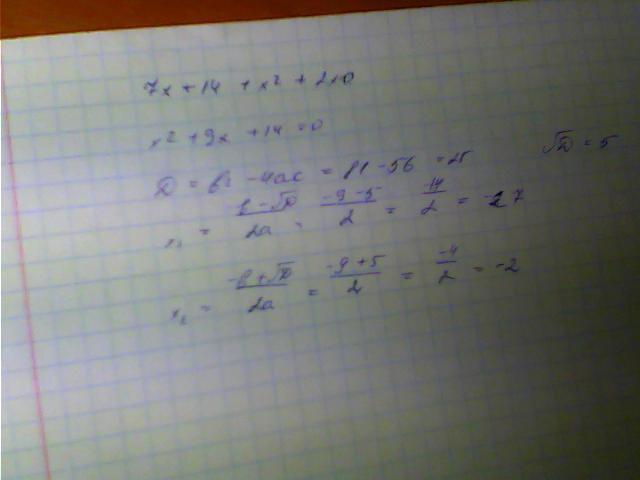 7x + 14 + x² + 2x0
x² + 9x + 14 = 0
D = b² - 4ac = 81 - 56 = 25 √D = 5
x₁ = b - √D / 2a = -9 - 5 / 2 = -14 / 2 = -7
x₂ = -b + √D / 2a = -9 + 5 / 2 = -4 / 2 = -2